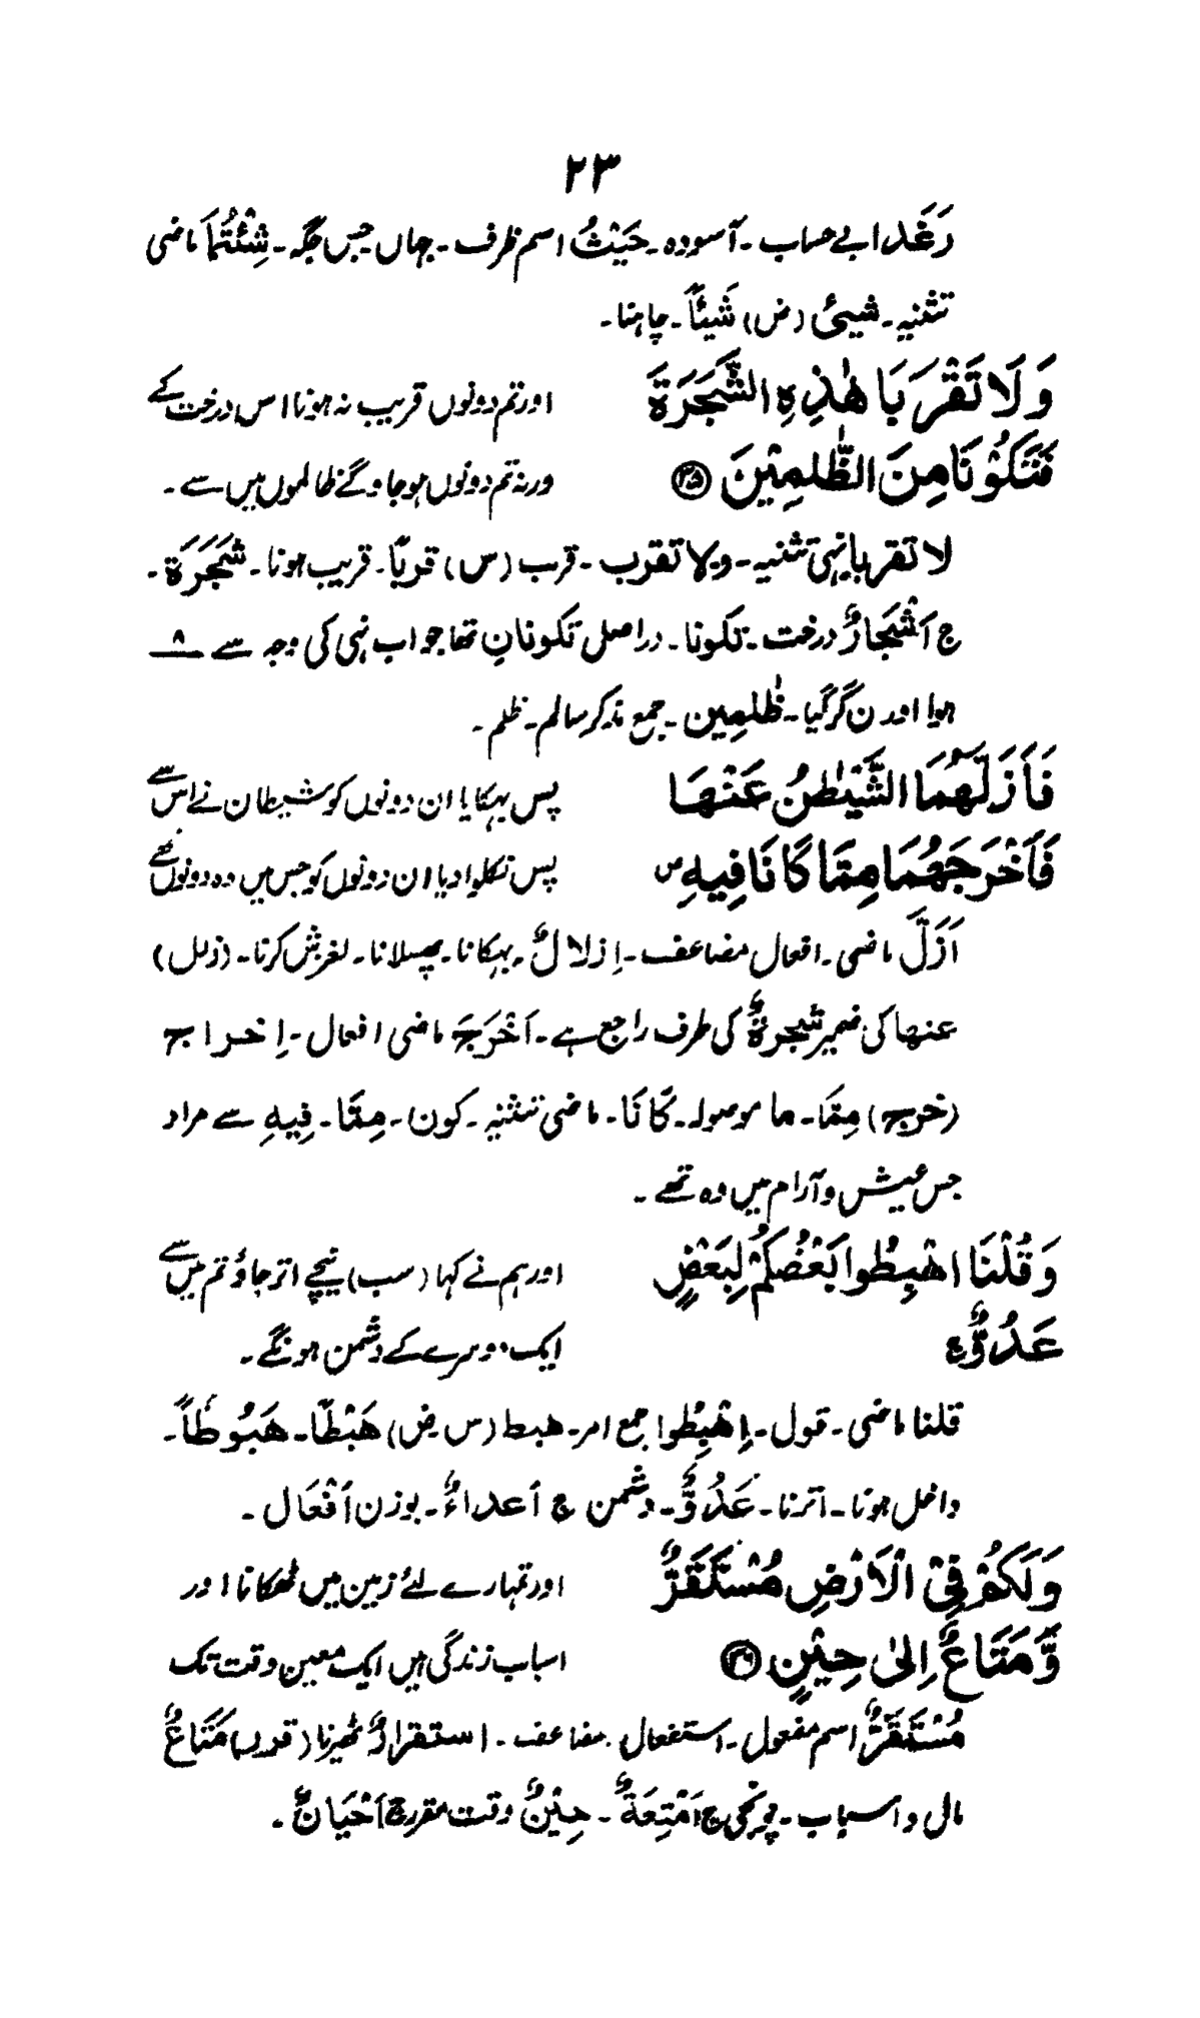 ۲۳
رَغَدا بے حساب۔ آسودہ۔ حَیْثُ اسم ظرف۔ جہاں جس جگہ۔ شِئْتُمَا ماضی
تثنیہ۔ شیئ (ض) شَیئًا۔ چاہنا۔
وَلَا تَقْرَبَا هٰذِهِ الشَّجَرَةَ اور تم دونوں قریب نہ ہونا اس درخت کے
فَتَكُوْنَا مِنَ الظّٰلِمِيْنَ ۳۵ ورنہ تم دونوں ہو جاوگے ظالموں میں سے۔
لا تقربا نہی تثنیہ۔ ولا تقرب۔ قرب (س) قربًا۔ قریب ہونا۔ شَجَرَة۔
ج اَشْجَارٌ درخت۔ تکونا۔ دراصل تکونانِ تھا جواب نہی کی وجہ سے ـــ۸ـــ
ہوا اور ن گر گیا۔ ظٰلمِین۔ جمع مذکر سالم۔ ظلم۔
فَاَزَلَّهُمَا الشَّيْطٰنُ عَنْهَا پس بہکایا ان دونوں کو شیطان نے اس سے
فَاَخْرَجَهُمَا مِمَّا كَانَا فِيهِ ص پس نکلوا دیا ان دونوں کو جس میں وہ دونوں تھے
اَزَلَّ ماضی۔ افعال مضاعف۔ اِزلالٌ۔ بہکانا۔ پھسلانا۔ لغزش کرنا۔ (زلل)
عنھا کی ضمیر شجرۃٌ کی طرف راجع ہے۔ اَخْرَجَ ماضی افعال۔ اِخراج
(خرج) مِمَّا۔ ما موصولہ۔ کَانَا۔ ماضی تثنیہ۔ کون۔ مِمَّا۔ فِیهِ سے مراد
جس عیش و آرام میں وہ تھے۔
وَقُلْنَا اهْبِطُوا بَعْضُكُمْ لِبَعْضٍ اور ہم نے کہا (سب) نیچے اتر جاؤ تم میں سے
عَدُوٌّ ج ایک دوسرے کے دشمن ہونگے۔
قلنا ماضی۔ قول۔ اِهْبِطُوا جمع امر۔ هبط (س ض) هَبْطًا۔ هَبُوطًا۔
داخل ہونا۔ اترنا۔ عَدُوٌّ۔ دشمن ج أعداءٌ۔ بوزن أفْعَال۔
وَلَكُمْ فِى الْاَرْضِ مُسْتَقَرٌّ اور تمہارے لئے زمین میں ٹھکانا اور
وَّمَتَاعٌ اِلٰى حِيْنٍ ۳۶ اسباب زندگی ہیں ایک معین وقت تک
مُسْتَقَرٌّ اسم مفعول۔ استفعال۔ مضاعف۔ استقرارٌ ٹھیرنا (قرر) مَتَاعٌ
مال و اسباب۔ پونجی ج اَمْتِعَةٌ۔ حِیْنٌ وقت مقرر ج اَحْیَانٌ۔